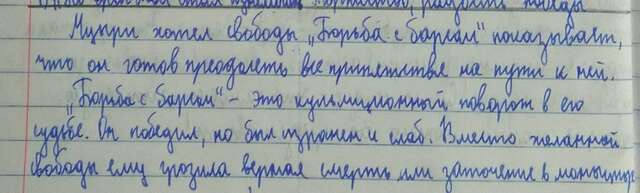 радость победы
Мцыри хотел свободы „Борьба с барсом“ показывает,
что он готов преодолеть все припятствия на пути к ней.
„Борьба с барсом“ – это кульмиционный поворот в его
судьбе. Он победил, но был изранен и слаб. Вместо желанной
свободы ему грозила верная смерть или заточение в монастыре